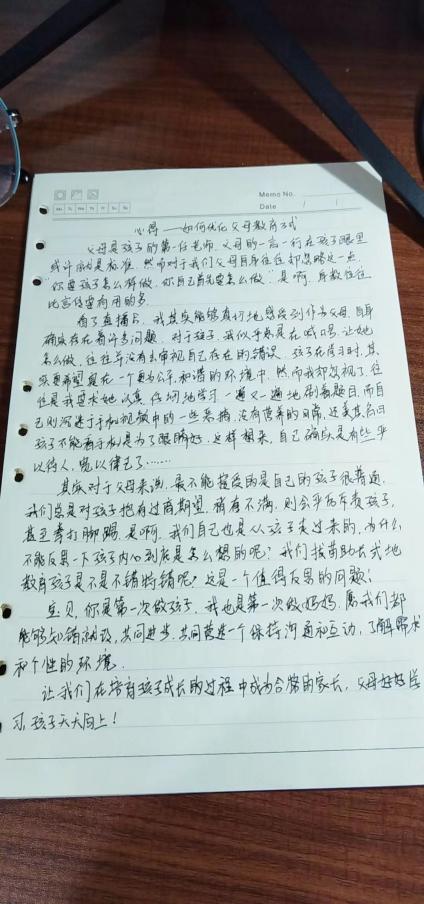 Memo No.
Mo Tu We Th Fr Sa Su
Date / /
心得——如何优化父母教育方式
父母是孩子的第一任老师,父母的一言一行在孩子眼里
或许就是标准,然而对于我们父母自身往往却忽略这一点
“你要孩子怎么样做,你自己首先要怎么做”是啊,身教往往
比言传要有用的多。
看了直播后,我其实能够真切地感受到作为父母,自身
确实存在着许多问题,对于孩子,我似乎总是在喊口号,让她
怎么做,往往并没有去审视自己存在的错误,孩子在学习时,其
实更希望是在一个更为公平、和谐的环境中,然而我却忽视了,往
往是我要求她认真、仔细地学习一遍又一遍地刷着题目,而自
己则沉迷于手机视频中的一些恶搞,没有营养的日常,还美其名曰
孩子不能看手机是为了眼睛好,这样想来,自己确实是有些严
以待人,宽以律己了……
其实对于父母来说,最不能接受的是自己的孩子很普通,
我们总是对孩子抱有过高期望,稍有不满,则会严厉斥责孩子,
甚至拳打脚踢,是啊,我们自己也是从孩子走过来的,为什么
不能反思一下孩子内心到底是怎么想的呢?我们拔苗助长式地
教育孩子是不是不错特错呢?这是一个值得反思的问题!
宝贝,你是第一次做孩子,我也是第一次做妈妈,愿我们都
能够知错就改,共同进步,共同营造一个保持沟通和互动,了解需求
和个性的环境.
让我们在培育孩子成长的过程中成为合格的家长,父母好好学
习,孩子天天向上!